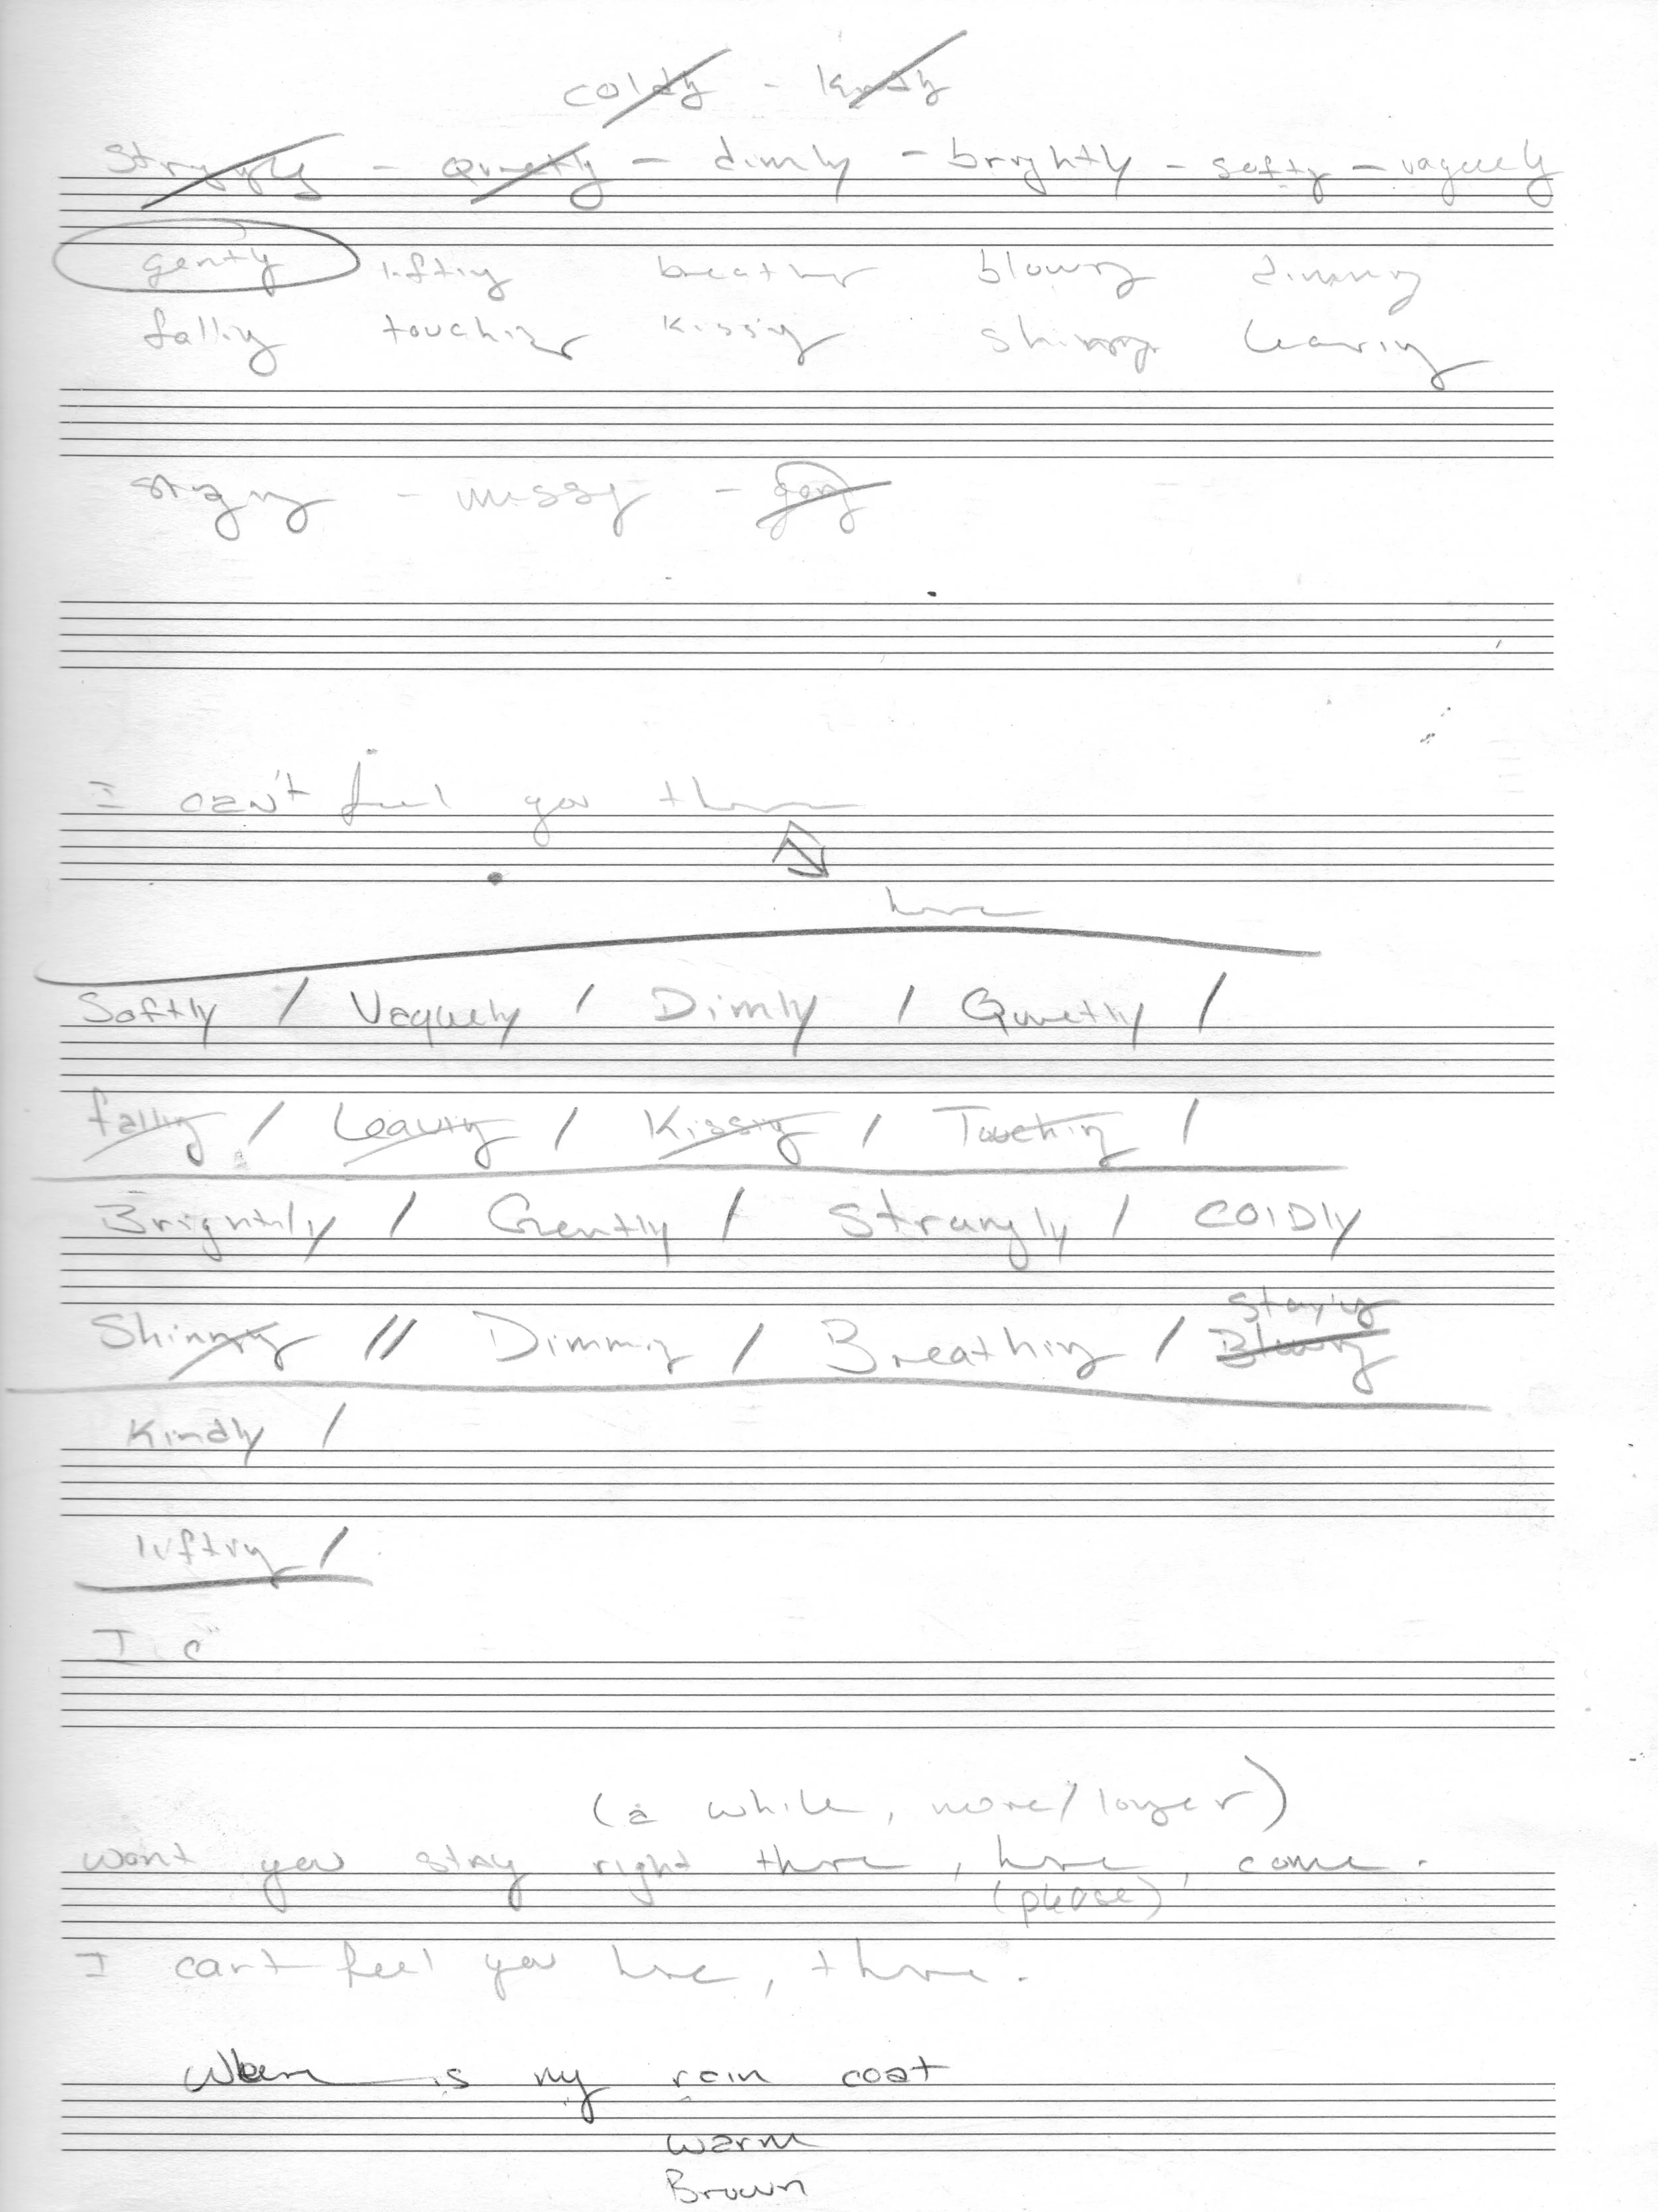 coldly - kindly
Strangly - Quietly - dimly - brightly - softly - vaguely
gently lifting breathing blowing dimming
falling touching kissing shining leaving
missing - going
I can't feel you there
here
Softly / Vaguely / Dimly / Quietly /
falling / Leaving / Kissing / Touching /
Brightly / Gently / Strangly / COLDly
Staying
Shining // Dimming / Breathing / Blowing
Kindly /
lifting /
I c
(a while, more/longer)
wont you stay right there, here, come.
(please)
I cant feel you here, there.
Where is my rain coat
warm
Brown